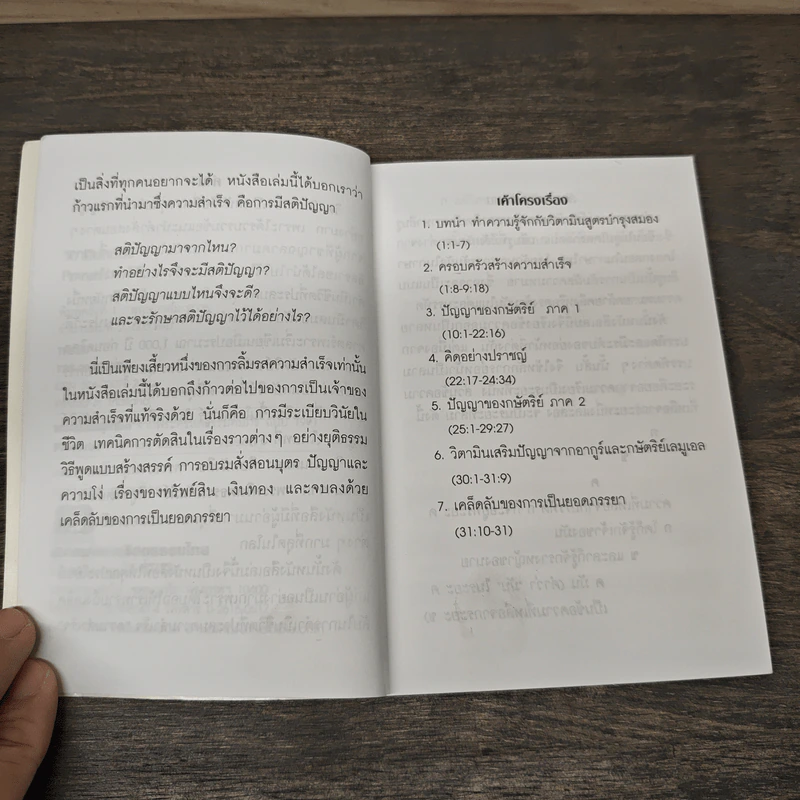 เป็นสิ่งที่ทุกคนอยากจะได้ หนังสือเล่มนี้ได้บอกเราว่า
ก้าวแรกที่นำมาซึ่งความสำเร็จ คือการมีสติปัญญา
สติปัญญามาจากไหน?
ทำอย่างไรจึงจะมีสติปัญญา?
สติปัญญาแบบไหนจึงจะดี?
และจะรักษาสติปัญญาไว้ได้อย่างไร?
นี่เป็นเพียงเสี้ยวหนึ่งของการลิ้มรสความสำเร็จเท่านั้น
ในหนังสือเล่มนี้ได้บอกถึงก้าวต่อไปของการเป็นเจ้าของ
ความสำเร็จที่แท้จริงด้วย นั่นก็คือ การมีระเบียบวินัยใน
ชีวิต เทคนิคการตัดสินในเรื่องราวต่างๆ อย่างยุติธรรม
วิธีพูดแบบสร้างสรรค์ การอบรมสั่งสอนบุตร ปัญญาและ
ความโง่ เรื่องของทรัพย์สิน เงินทอง และจบลงด้วย
เคล็ดลับของการเป็นยอดภรรยา
เค้าโครงเรื่อง
1. บทนำ ทำความรู้จักกับวิตามินสูตรบำรุงสมอง
(1:1-7)
2. ครอบครัวสร้างความสำเร็จ
(1:8-9:18)
3. ปัญญาของกษัตริย์ ภาค 1
(10:1-22:16)
4. คิดอย่างปราชญ์
(22:17-24:34)
5. ปัญญาของกษัตริย์ ภาค 2
(25:1-29:27)
6. วิตามินเสริมปัญญาจากอากูร์และกษัตริย์เลมูเอล
(30:1-31:9)
7. เคล็ดลับของการเป็นยอดภรรยา
(31:10-31)